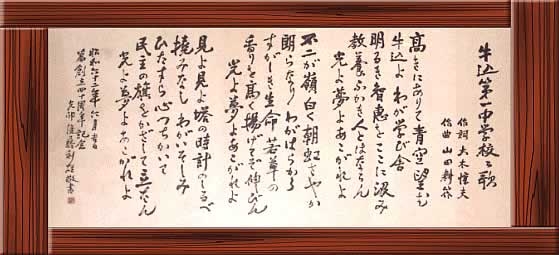 牛込第一中学校々歌
作詞 大木惇夫
作曲 山田耕筰
高きにありて青空望む
牛込よわが学び舎
明るき智慧をここに汲み
教養ふかき人とはならん
光よ夢よあこがれよ
不二が嶺白く朝虹さやか
朗らなりわがはらから
すがしき生命若草の
香りを高く揚げてぞ伸びん
光よ夢よあこがれよ
見よ見よ塔の時計のしるべ
撓みなしわがいそしみ
ひたすら心つちかいて
民主の旗をかざして立たん
光よ夢よあこがれよ
昭和六十二年六月吉日
創立四十周年記念
敬書